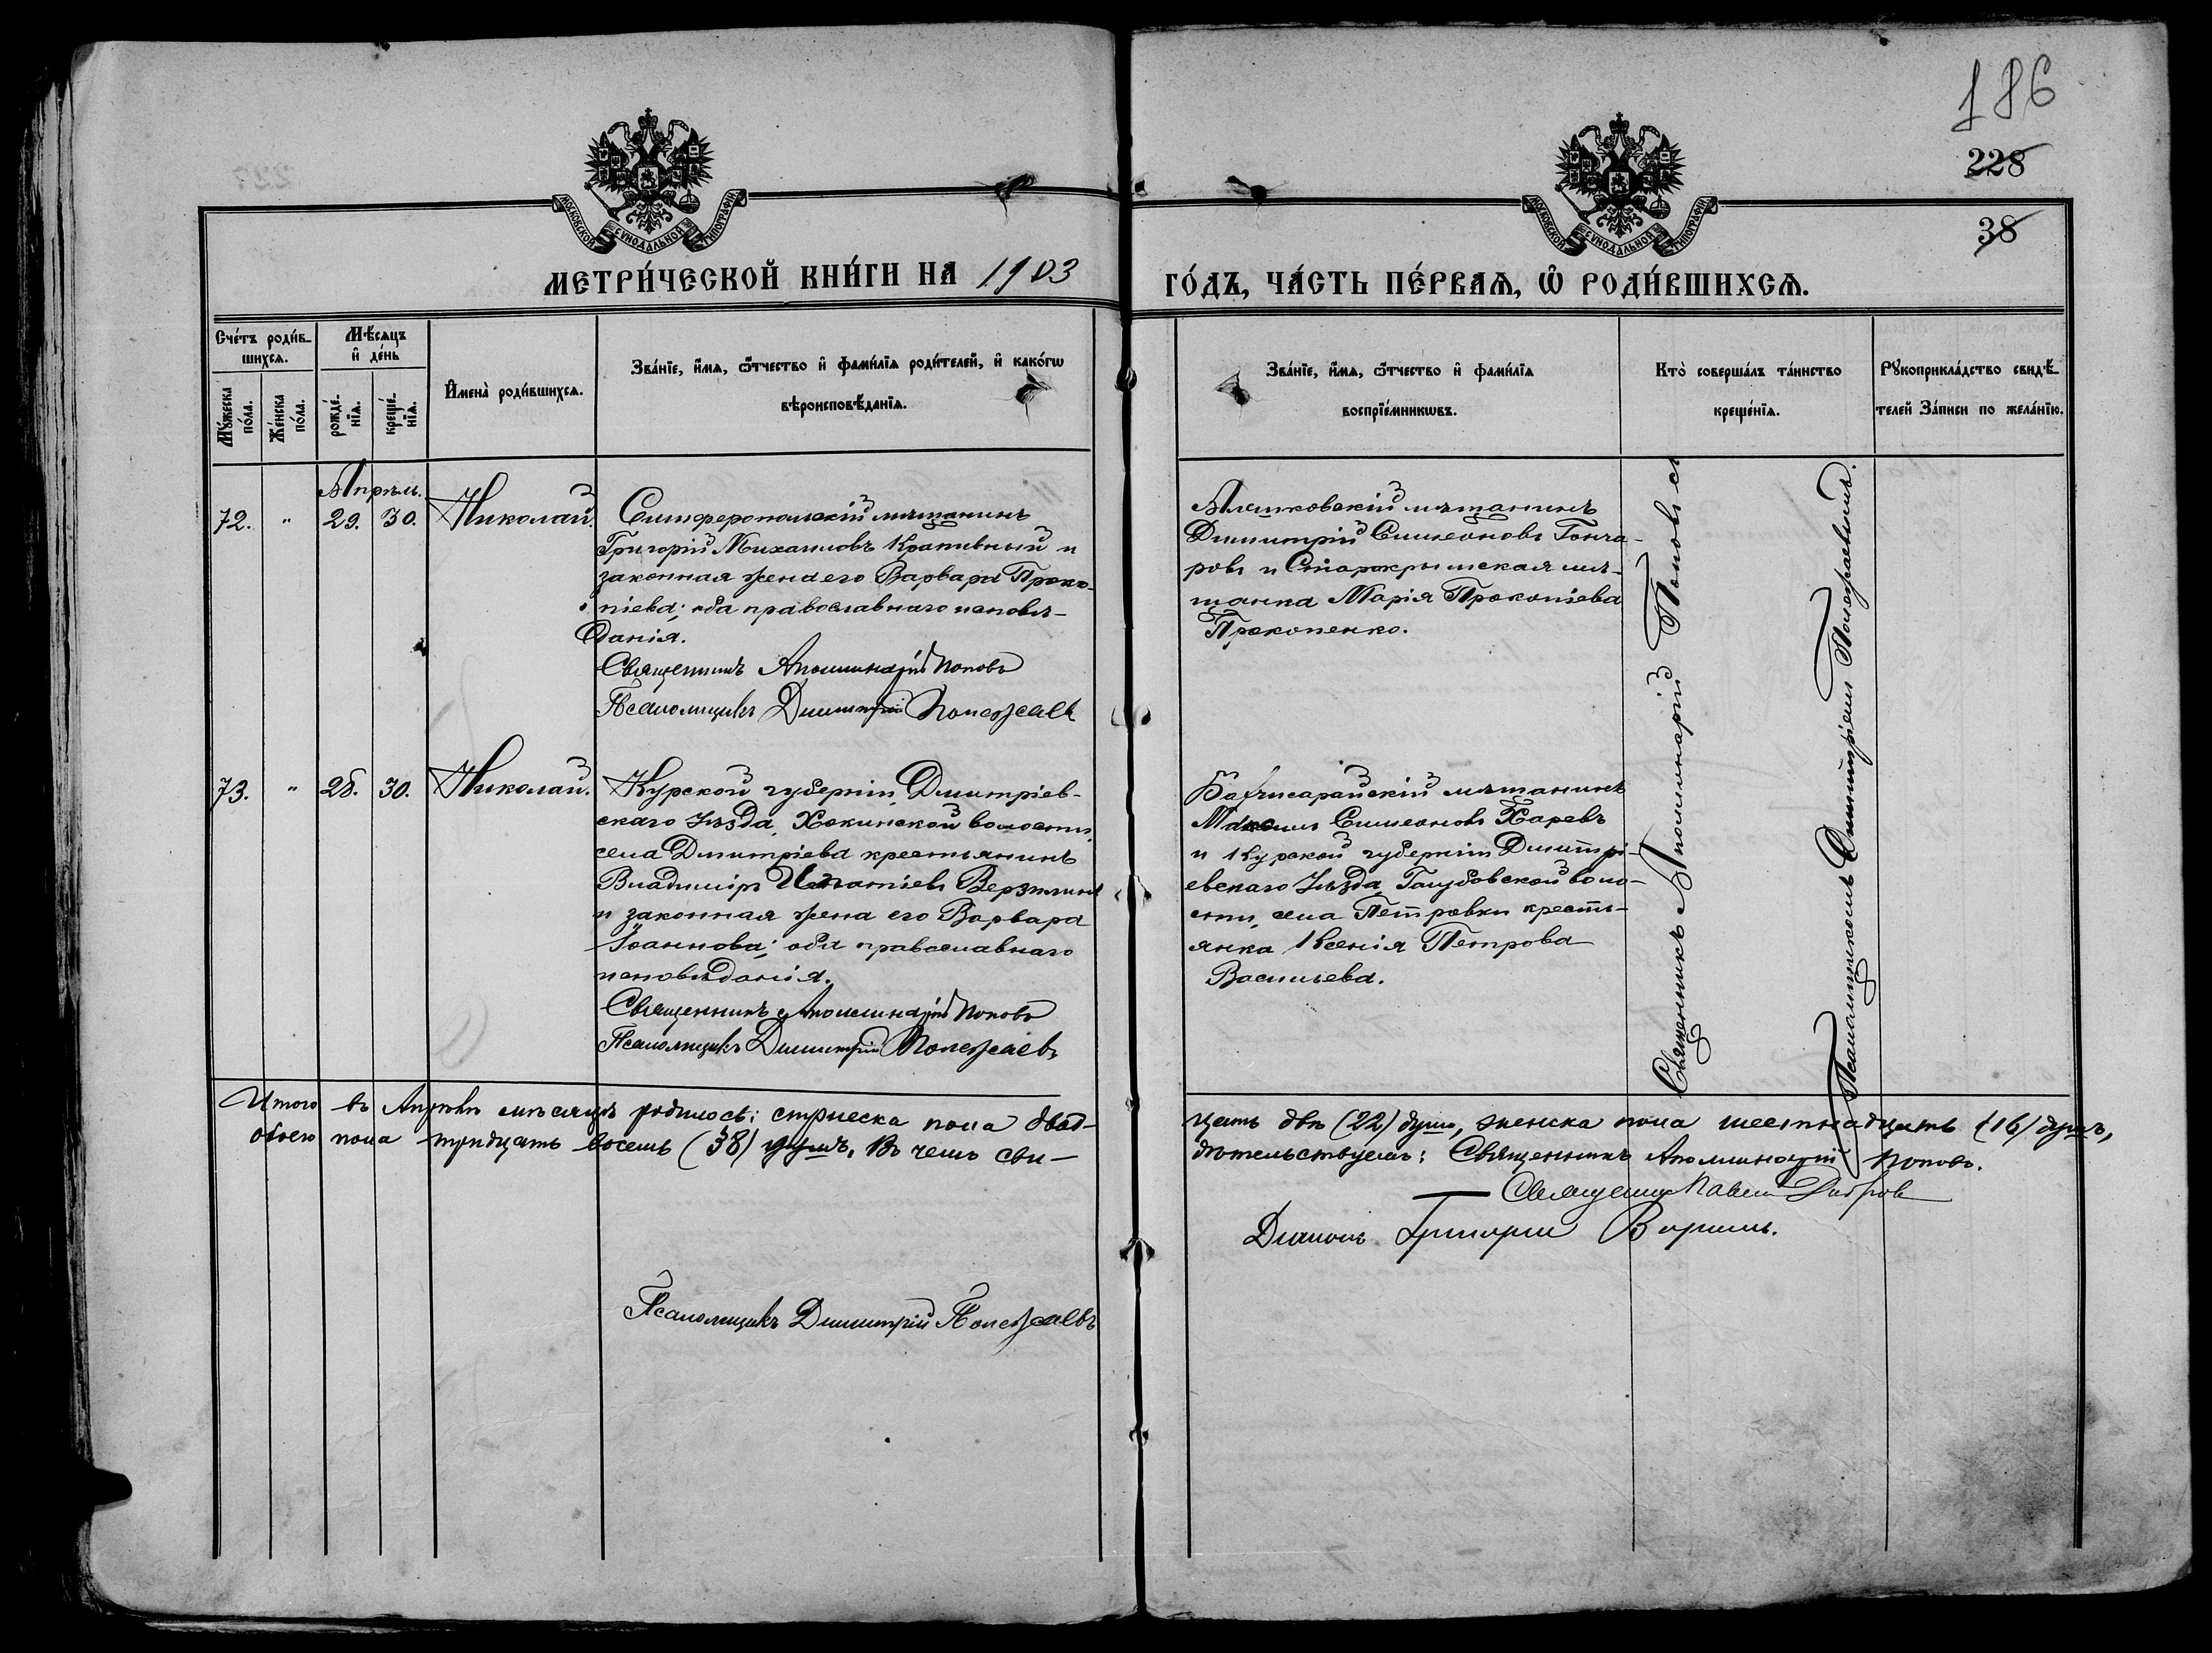 186
228
38
МОСКОВСКОЙ СѴНОДАЛЬНОЙ ТИПОГРАФІИ
МОСКОВСКОЙ СѴНОДАЛЬНОЙ ТИПОГРАФІИ
МЕТРИ́ЧЕСКОЙ КНИ́ГИ НА 1903
ГО́ДЪ, ЧА́СТЬ ПЕ́РВАѦ, Ѡ҆ РОДИ́ВШИХСѦ.
Сче́тъ роди́в-
шихсѧ.
Мꙋ́жеска по́ла.
Же́нска по́ла.
Мѣ́сѧцъ
и҆ де́нь
рожде́-
нїѧ.
креще́-
нїѧ.
И҆мена̀ роди́вшихсѧ.
Зва́нїе, и҆́мѧ, ѻ҆́тчество и҆ фами́лїѧ роди́телей, и҆ како́гѡ
вѣроисповѣ́данїѧ.
Зва́нїе, и҆́мѧ, ѻ҆́тчество и҆ фами́лїѧ
воспрїе́мникѡвъ.
Кто̀ соверша́лъ та́инство
креще́нїѧ.
Рꙋкоприкла́дство свидѣ́-
телей За́писи по жела́нїю.
Апрѣль.
72. " 29. 30. Николай.
Симферопольскій мѣщанинъ
Григорій Михаиловъ Крапивный и
законная жена его Варвара Проко-
піева; оба православнаго исповѣ-
данія.
Священникъ Аполлинарій Поповъ
Псаломщикъ Димитрій Полежаевъ
Алешковскій мѣщанинъ
Димитрій Симеоновъ Гонча-
ровъ и Старокрымская мѣ-
щанка Марія Прокопіева
Прокопенко.
73. " 28. 30. Николай.
Курской губерніи, Димитріев-
скаго уѣзда, волости,
села Димитріева крестьянинъ
Владиміръ Игнатіевъ
и законная жена его Варвара
Іоаннова; оба православнаго
исповѣданія.
Священникъ Аполлинарій Поповъ
Псаломщикъ Димитрій Полежаевъ
Бахчисарайскій мѣщанинъ
Максимъ Симеоновъ Харевъ
и Курской губерніи Димитрі-
евскаго уѣзда, Голубовской воло-
сти, села Петровки кресть-
янка Ксенія Петрова
Васильева.
Священникъ Аполлинарій Поповъ съ
Псаломщикомъ Димитріемъ Полежаевымъ.
Итого въ Апрѣлѣ мѣсяцѣ родилось: мужеска пола двад-
цать двѣ (22) души, женска пола шестнадцать (16) душъ,
обоего пола тридцать восемь (38) душъ. Въ чемъ сви-
дѣтельствуемъ: Священникъ Аполлинарій Поповъ.
Священникъ Павелъ
Діаконъ Григорій
Псаломщикъ Димитрій Полежаевъ